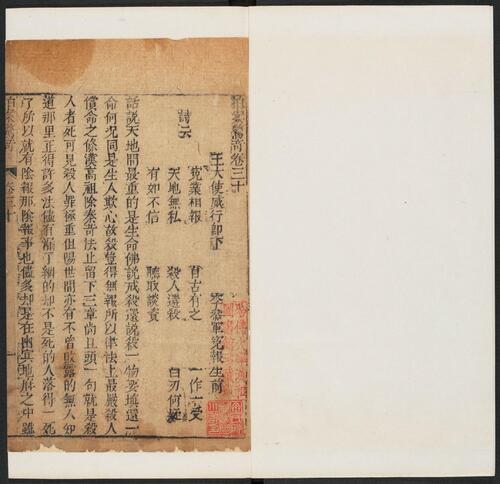 拍案驚奇卷三十
王大使威行部下
李參軍冤報生前
詩云
冤業相報 自古有之
一作一受
天地無私 殺人還殺
自刃何疑
有如不信 聽取談資
話說天地間最重的是生命佛說戒殺還說殺一物要填還一
命何況同是生人欺心故殺豈得無報所以律法上最嚴殺人
償命之條漢高祖除秦苛法止留下三章尚且頭一句就是殺
人者死可見殺人罪極重但陽世間亦有不曾敗露的無人知
道那里正得許多法儘有漏了網的却不是死的人落得一死
了所以就有陰報那陰報事也儘多却是在幽冥地府之中雖
拍案驚奇 卷三十 一